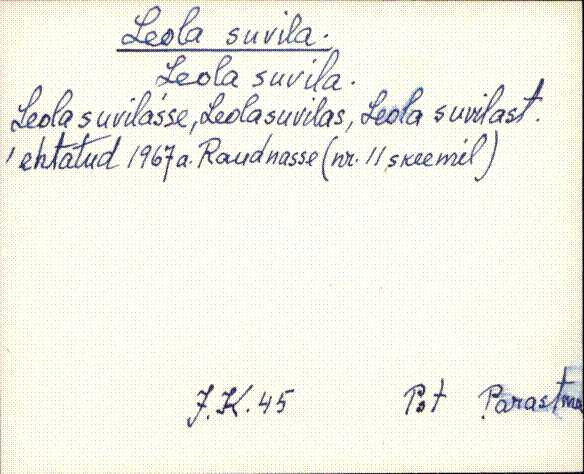 Leola suvila.
Leola suvila.
Leola suvilasse, Leola suvilas, Leola suvilast.
ehtatud 1967 a. Raudnasse (nr. 11 skeemil)
J.K. 45 Pst Parastma